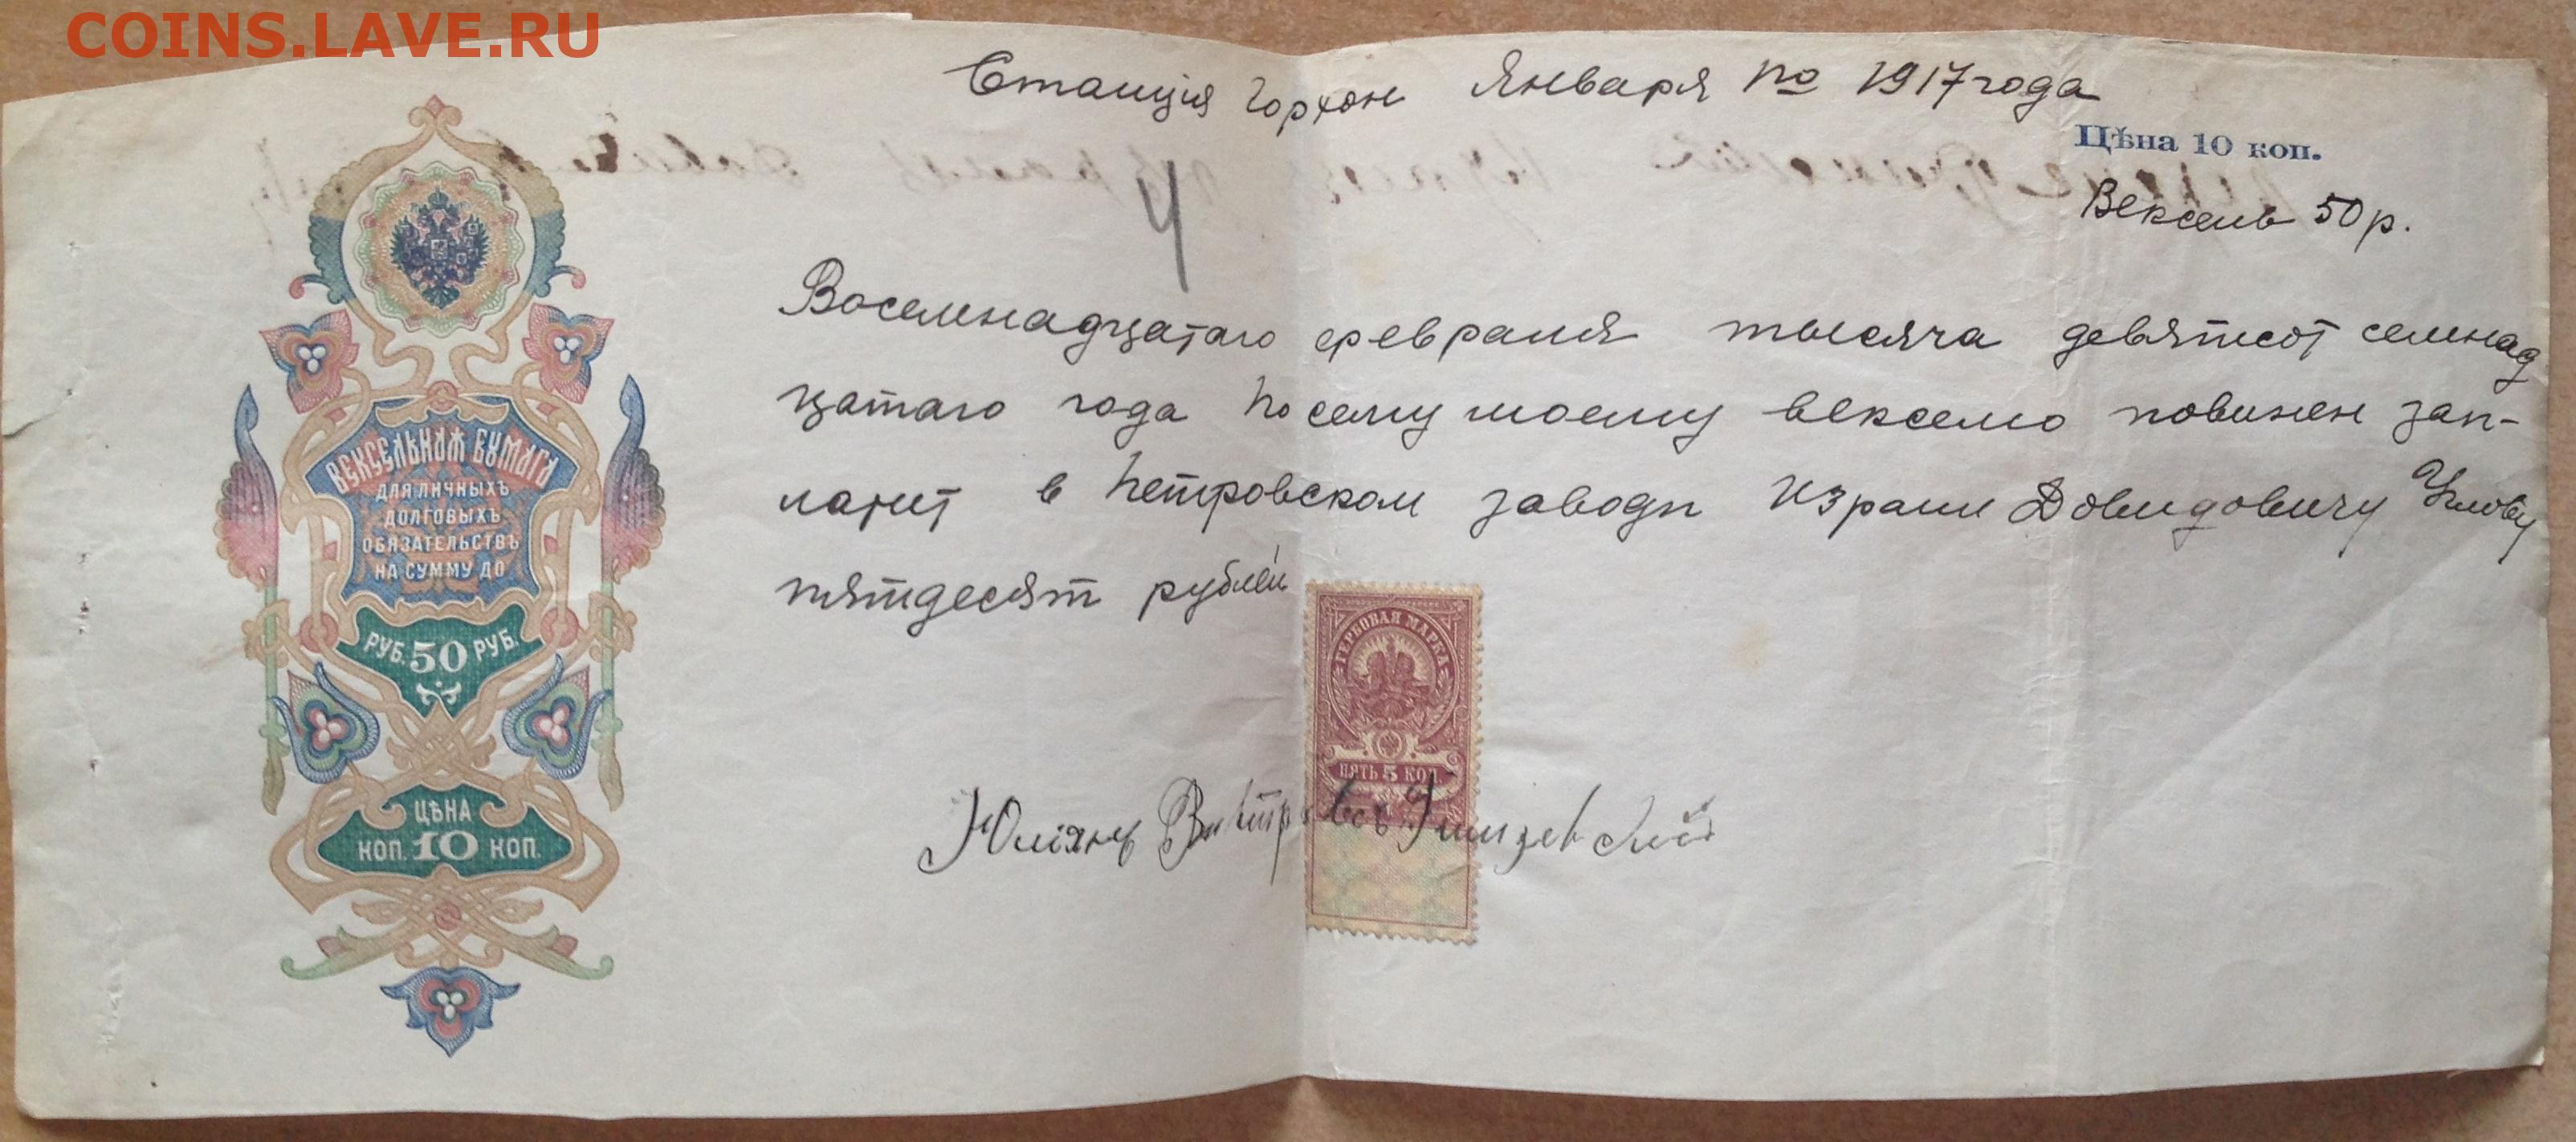 COINS.LAVE.RU
Станція Горхон Января 1917 года
Цѣна 10 коп.
Вексель 50 р.
4
Восемнадцатаго февраля тысяча девятсот семнад
цатаго года По сему моему векселю повинен зап-
латит в Петровском заводѣ Израилю Довидовичу
пятдесят рублей
Юліянъ
ВЕКСЕЛЬНАЯ БУМАГА
ДЛЯ ЛИЧНЫХЪ
ДОЛГОВЫХЪ
ОБЯЗАТЕЛЬСТВЪ
НА СУММУ ДО
РУБ. 50 РУБ.
ЦѢНА
КОП. 10 КОП.
ГЕРБОВАЯ МАРКА
ПЯТЬ 5 КОП.